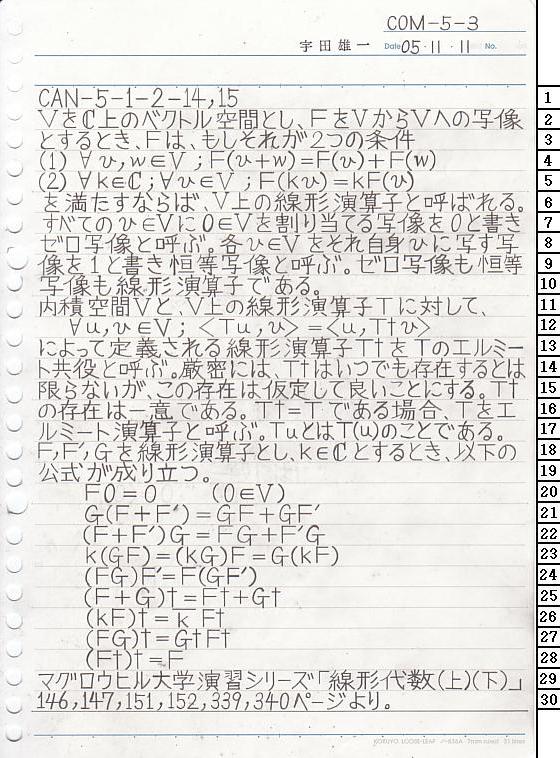 COM-5-3
宇田雄一 Date 05・11・11 No.
CAN-5-1-2-14,15
VをC上のベクトル空間とし、FをVからVへの写像
とするとき、Fは、もしそれが2つの条件
(1) ∀υ,w∈V ; F(υ+w)=F(υ)+F(w)
(2) ∀k∈ℂ ; ∀υ∈V ; F(kυ)=kF(υ)
を満たすならば、V上の線形演算子と呼ばれる。
すべてのυ∈Vに0∈Vを割り当てる写像を0と書き
ゼロ写像と呼ぶ。各υ∈Vをそれ自身υに写す写
像を1と書き恒等写像と呼ぶ。ゼロ写像も恒等
写像も線形演算子である。
内積空間Vと、V上の線形演算子Tに対して、
∀u,υ∈V ; 〈Tu,υ〉=〈u,T†υ〉
によって定義される線形演算子T†をTのエルミー
ト共役と呼ぶ。厳密には、T†はいつでも存在するとは
限らないが、この存在は仮定して良いことにする。T†
の存在は一意である。T†=Tである場合、Tをエ
ルミート演算子と呼ぶ。TuとはT(u)のことである。
F,F',Gを線形演算子とし、k∈ℂとするとき、以下の
公式が成り立つ。
F0=0 (0∈V)
G(F+F')=GF+GF'
(F+F')G=FG+F'G
k(GF)=(kG)F=G(kF)
(FG)F'=F(GF')
(F+G)†=F†+G†
(kF)†=k̅ F†
(FG)†=G†F†
(F†)†=F
マグロウヒル大学演習シリーズ「線形代数(上)(下)」
146,147,151,152,339,340ページより。
KOKUYO LOOSE-LEAF ノ-836A 7mm ruled 31 lines
1
2
3
4
5
6
7
8
9
10
11
12
13
14
15
16
17
18
19
20
21
22
23
24
25
26
27
28
29
30